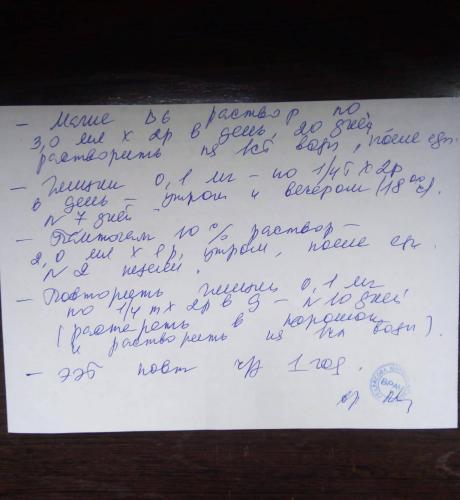 - Магне В6 раствор по
3,0 мл х 2р в день, 20 дней
растворить на 1ст воды, после еды.
- Глицин 0,1 мг - по 1/4 т х 2р
в день - утром и вечером (18 00).
N 7 дней
- Пантогам 10% раствор -
2,0 мл х 1 р, утром, после еды.
N 2 недели.
- Повторить глицин 0,1 мг
по 1/4 т х 2р в д - N 10 дней
(растереть в порошок
и растворить на 1ст воды).
- ЭЭГ повт ч/з 1 год.
ВРАЧ
вр